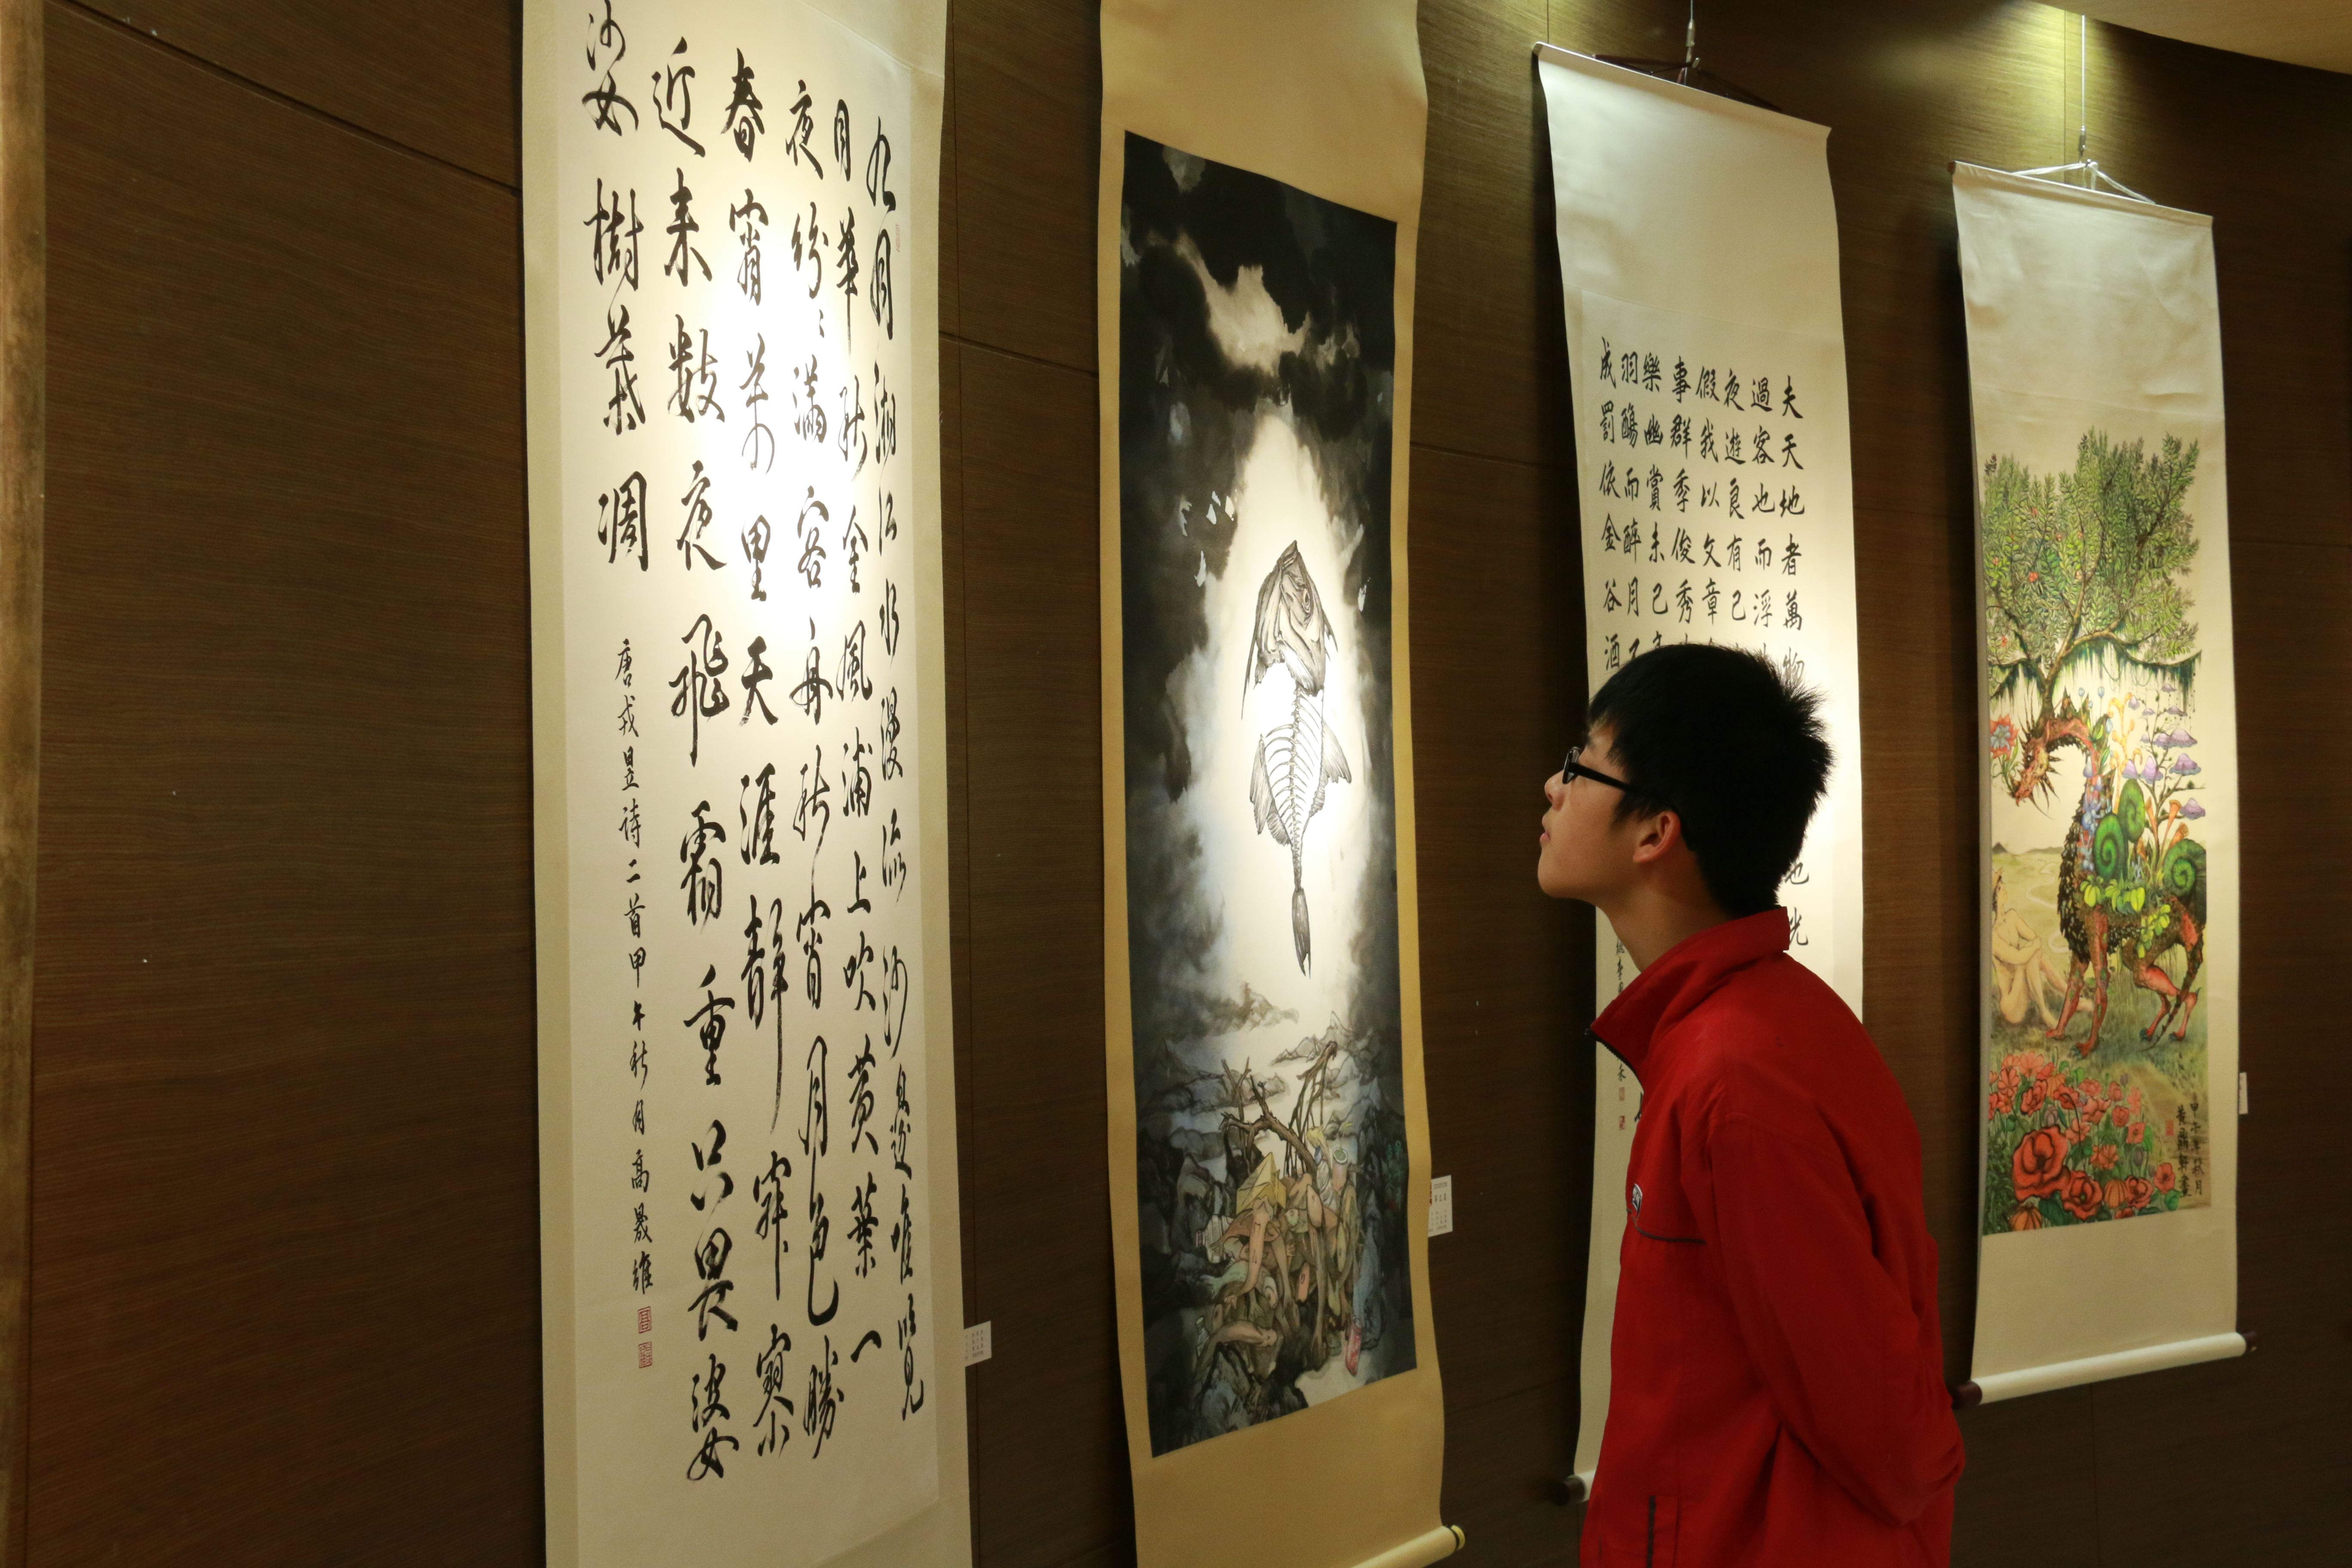 九月湘江水漫流沙邊唯覽
月華秋金風浦上吹黃葉一
夜紛〻滿客舟秋宵月色勝
春宵萬里天涯靜寂寥
近來數夜飛霜重只畏婆
娑樹葉凋
唐戎昱詩二首甲午秋月高晟維
夫天地者萬物也光
過客也而浮
夜遊良有已
假我以文章
事群季俊秀
樂幽賞未已
羽觴而醉月
成罰依金谷酒
甲午年秋月
黃軒畫